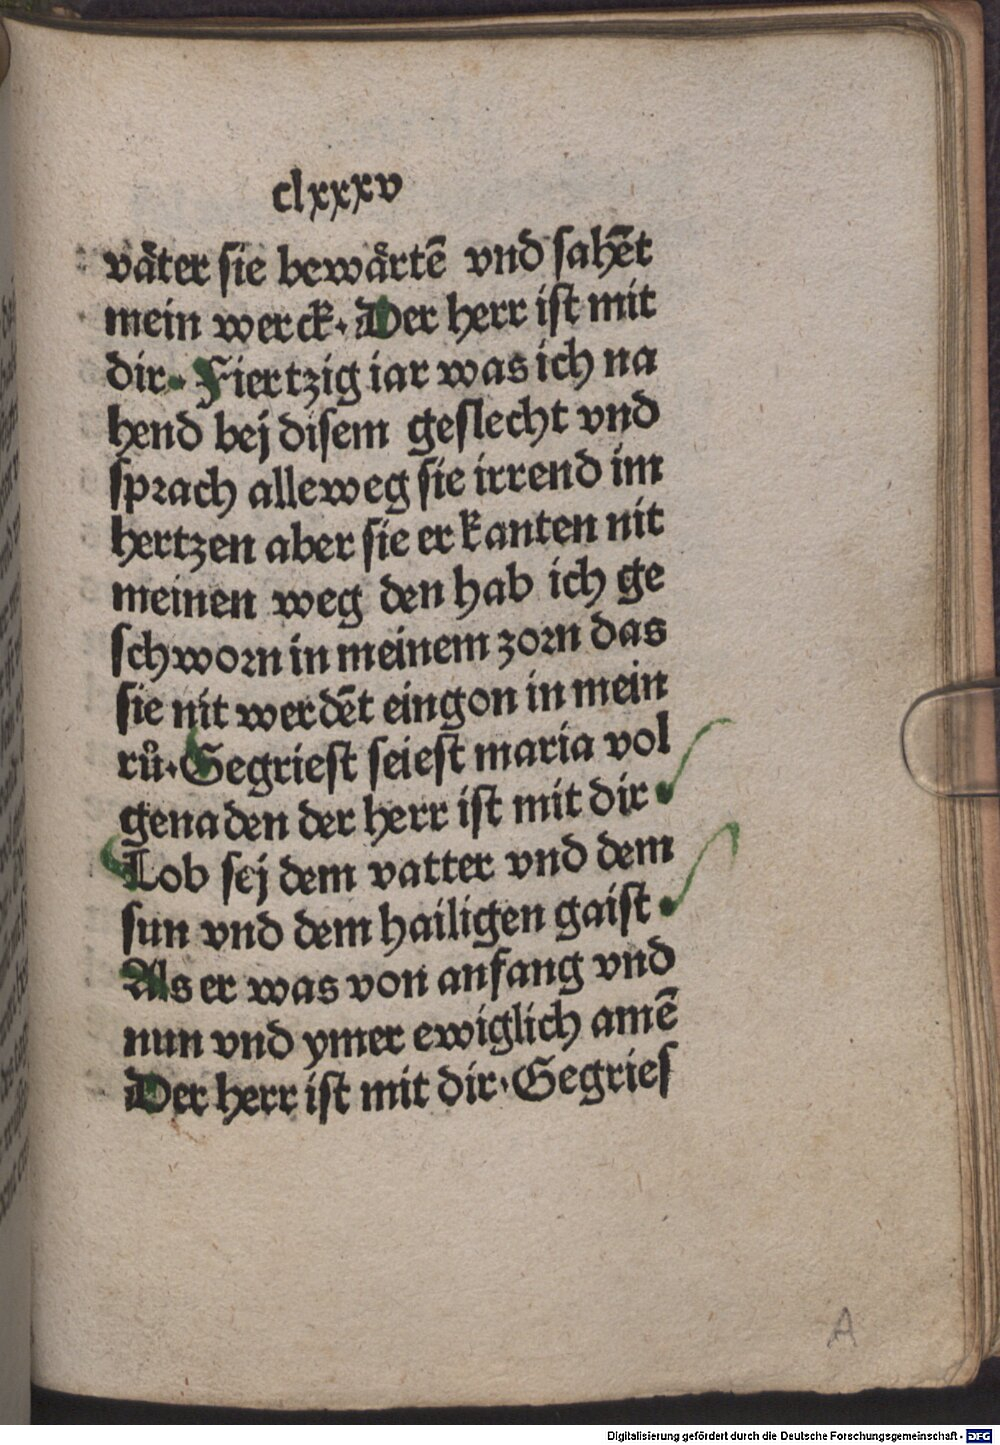 clxxxv
väter sie bewärtē vnd sahēt
mein werck. Der herr ist mit
dir. Fiertzig iar was ich na
hend bej disem geslecht vnd
sprach alleweg sie irrend im
hertzen aber sie erkanten nit
meinen weg den hab ich ge
schworn in meinem zorn das
sie nit werdēt eingon in mein
rů. Gegriest seiest maria vol
genaden der herr ist mit dir.
Lob sej dem vatter vnd dem
sun vnd dem hailigen gaist.
Als er was von anfang vnd
nun vnd ymer ewiglich amē
Der herr ist mit dir. Gegries
A
Digitalisierung gefördert durch die Deutsche Forschungsgemeinschaft - DFG